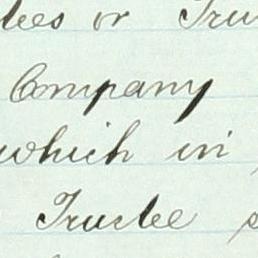 tees or Tru
Company
which in
Trustee s